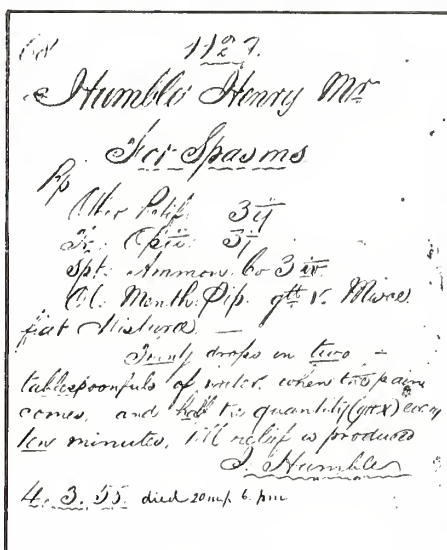 1127.
Humble Henry Mr
For Spasms
Rp
Æther Rectif: ʒij
Tr. Opii: ʒj
Spt. Ammon. Co ʒiv.
Ol. Menth. Pip. gtt v. Misce
fiat Mistura —
Twenty drops in two
tablespoonfuls of water, when the pain
comes, and half the quantity (gttx) every
few minutes, till relief is produced
J. Humble
4. 3. 55. died 20 m/ 6. pm